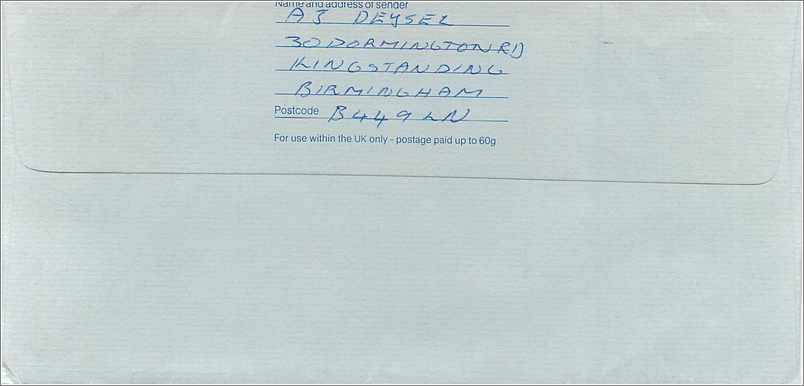 Name and address of sender
A J DEYSEL
30 DORMINGTON RD
KINGSTANDING
BIRMINGHAM
Postcode B44 9LN
For use within the UK only - postage paid up to 60g